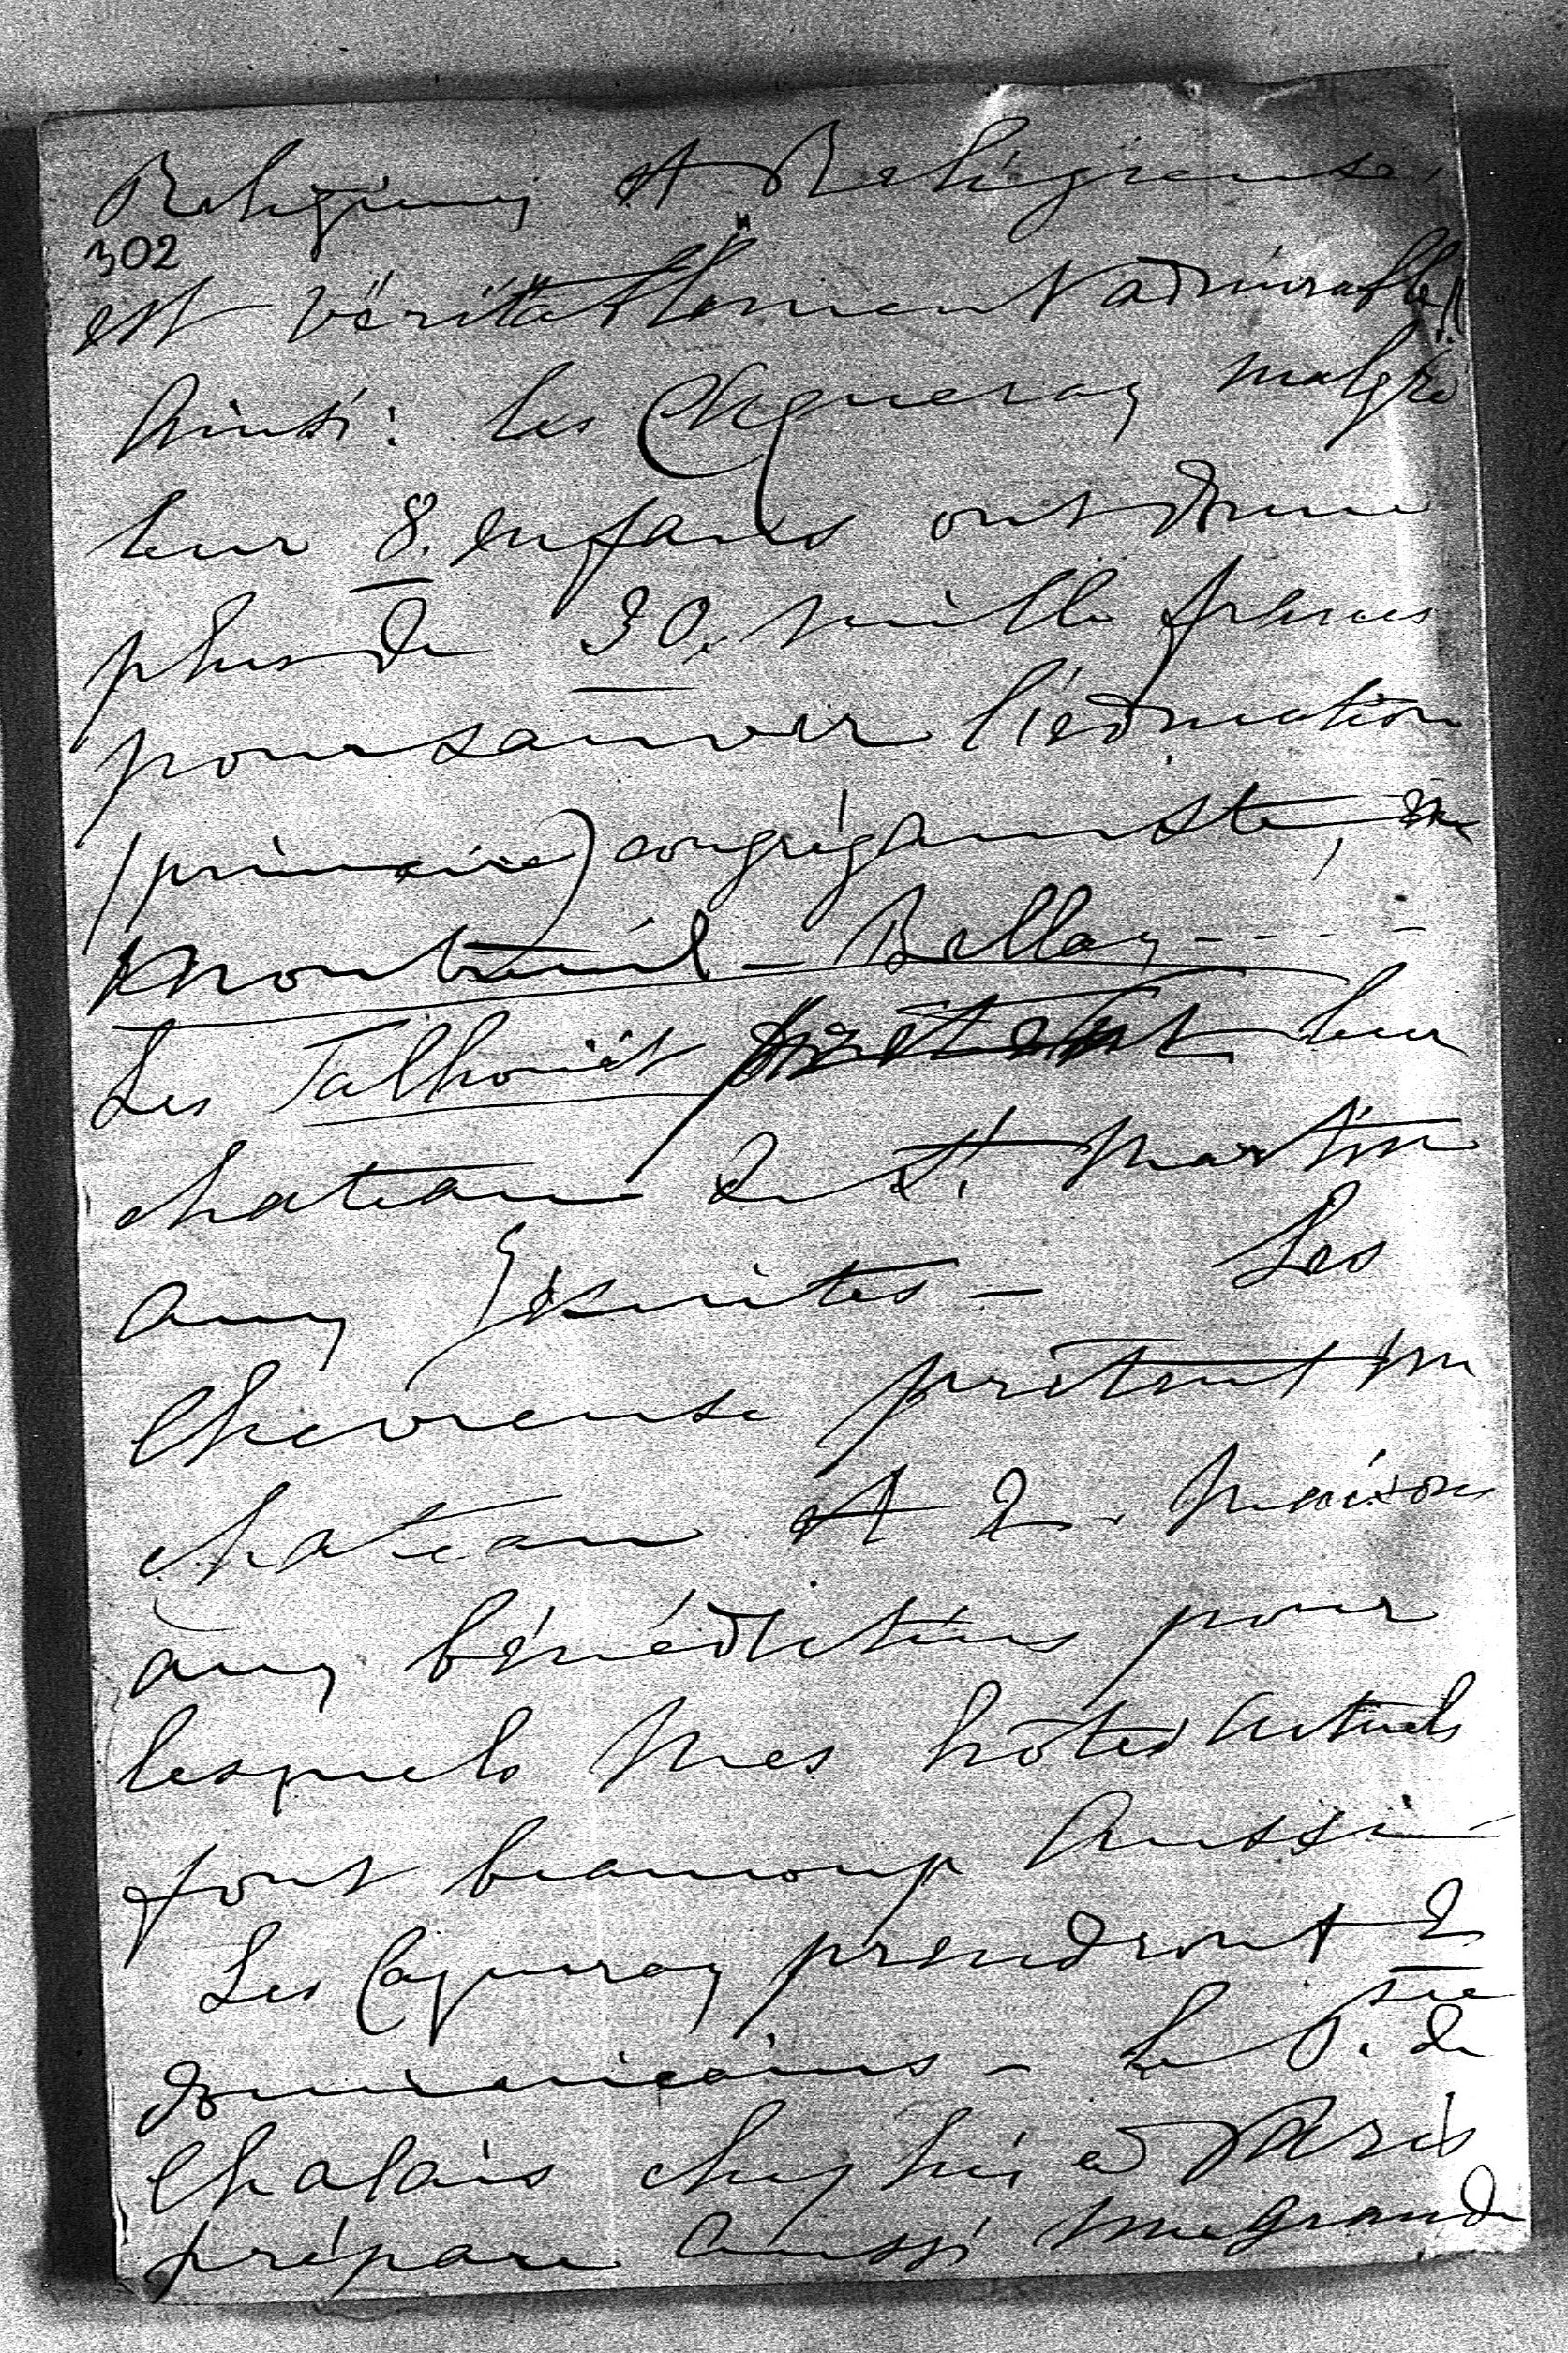 Religieux et Religieuses,
302
est véritablement admirable!
Ainsi: les Cayneray malgré
leur 8. enfans ont donné
plus de 30. mille francs
pour sauver l'éducation
(primaire) congréganiste, en
Montreuil-Bellay - - - -
Les Talhouët prêtent leur
chateau de St. Martin
aux Jésuites - Les
Chevreuse prêtent un
chateau et 2. maisons
aux bénédictins pour
lesquels mes hôtes actuels
font beaucoup aussi -
Les Caqueray prendront 2
dominicains - le P. de
Chalais chez lui à Paris
prépare aussi une grande